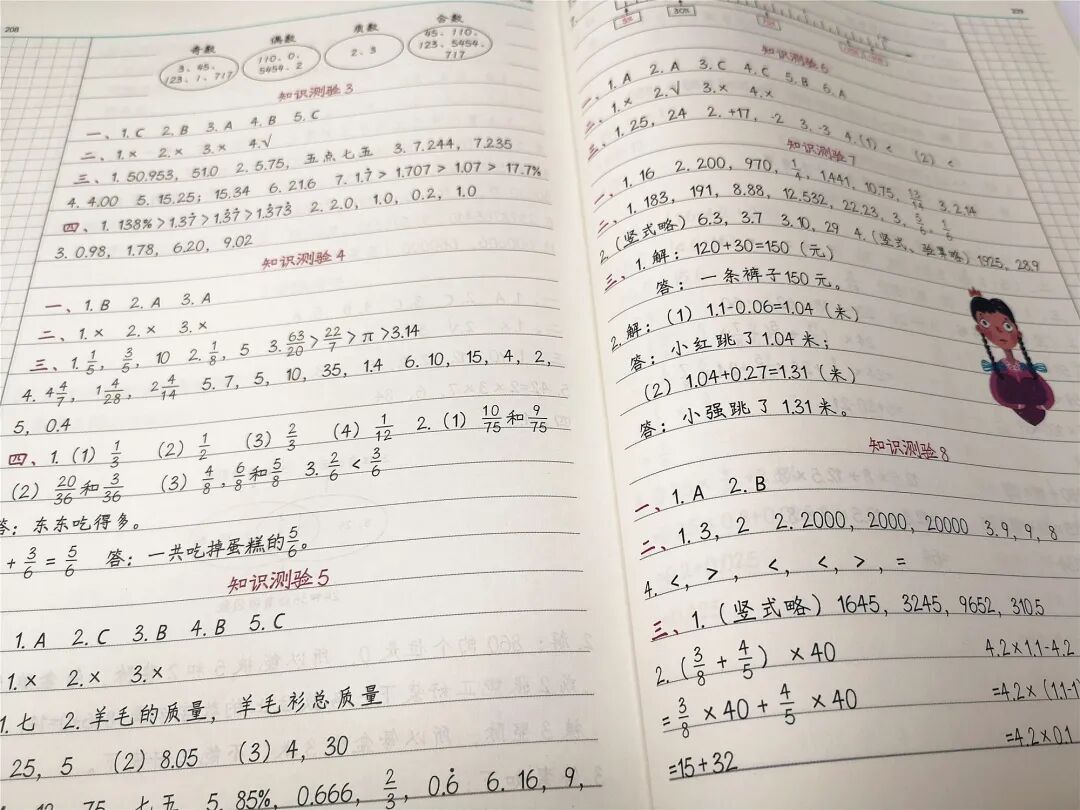 208
奇数 偶数 质数 合数
3、45、 110、0、 2、3 45、110、
123、1、717 5454、2 123、5454、
717
知识测验3
一、1.C 2.B 3.A 4.B 5.C
二、1.× 2.× 3.× 4.√
三、1.50.953,51.0 2.5.75,五点七五 3.7.244,7.235
4.4.00 5.15.25;15.34 6.21.6 7.1.7̇>1.707>1.07>17.7%
四、1.138%>1.37̇>1.3̇7̇>1.3̇73̇ 2.2.0,1.0,0.2,1.0
3.0.98,1.78,6.20,9.02
知识测验4
一、1.B 2.A 3.A
二、1.× 2.× 3.×
三、1.1/5,3/5,10 2.1/8,5 3.63/20>22/7>π>3.14
4.4 4/7,1 4/28,2 4/14 5.7,5,10,35,1.4 6.10,15,4,2,
5,0.4
四、1.(1)1/3 (2)1/2 (3)2/3 (4)1/12 2.(1)10/75和9/75
(2)20/36和3/36 (3)4/8,6/8和5/8 3.2/6<3/6
答:东东吃得多。
+3/6=5/6 答:一共吃掉蛋糕的5/6。
知识测验5
1.A 2.C 3.B 4.B 5.C
1.× 2.× 3.×
1.七 2.羊毛的质量,羊毛衫总质量
25,5 (2)8.05 (3)4,30
75 七五 5.85%,0.666,2/3,0.6̇ 6.16,9,
209
30%
知识测验6
一、1.A 2.A 3.C 4.C 5.B 6.A
二、1.× 2.√ 3.× 4.×
三、1.25,24 2.+17,-2 3.-3 4.(1)< (2)<
知识测验7
一、1.16 2.200,970,1/4,1441,10.75,13/14 3.2.14
二、1.183,191,8.88,12.532,22.23,3,5/6,1/6
2.(竖式略)6.3,3.7 3.10,29 4.(竖式、验算略)1925,28.9
三、1.解:120+30=150(元)
答:一条裤子150元。
2.解:(1)1.1-0.06=1.04(米)
答:小红跳了1.04米;
(2)1.04+0.27=1.31(米)
答:小强跳了1.31米。
知识测验8
一、1.A 2.B
二、1.3,2 2.2000,2000,20000 3.9,9,8
4.<,>,<,<,>,=
三、1.(竖式略)1645,3245,9652,3105
2.(3/8+4/5)×40 4.2×1.1-4.2
=3/8×40+4/5×40 =4.2×(1.1-1)
=15+32 =4.2×0.1